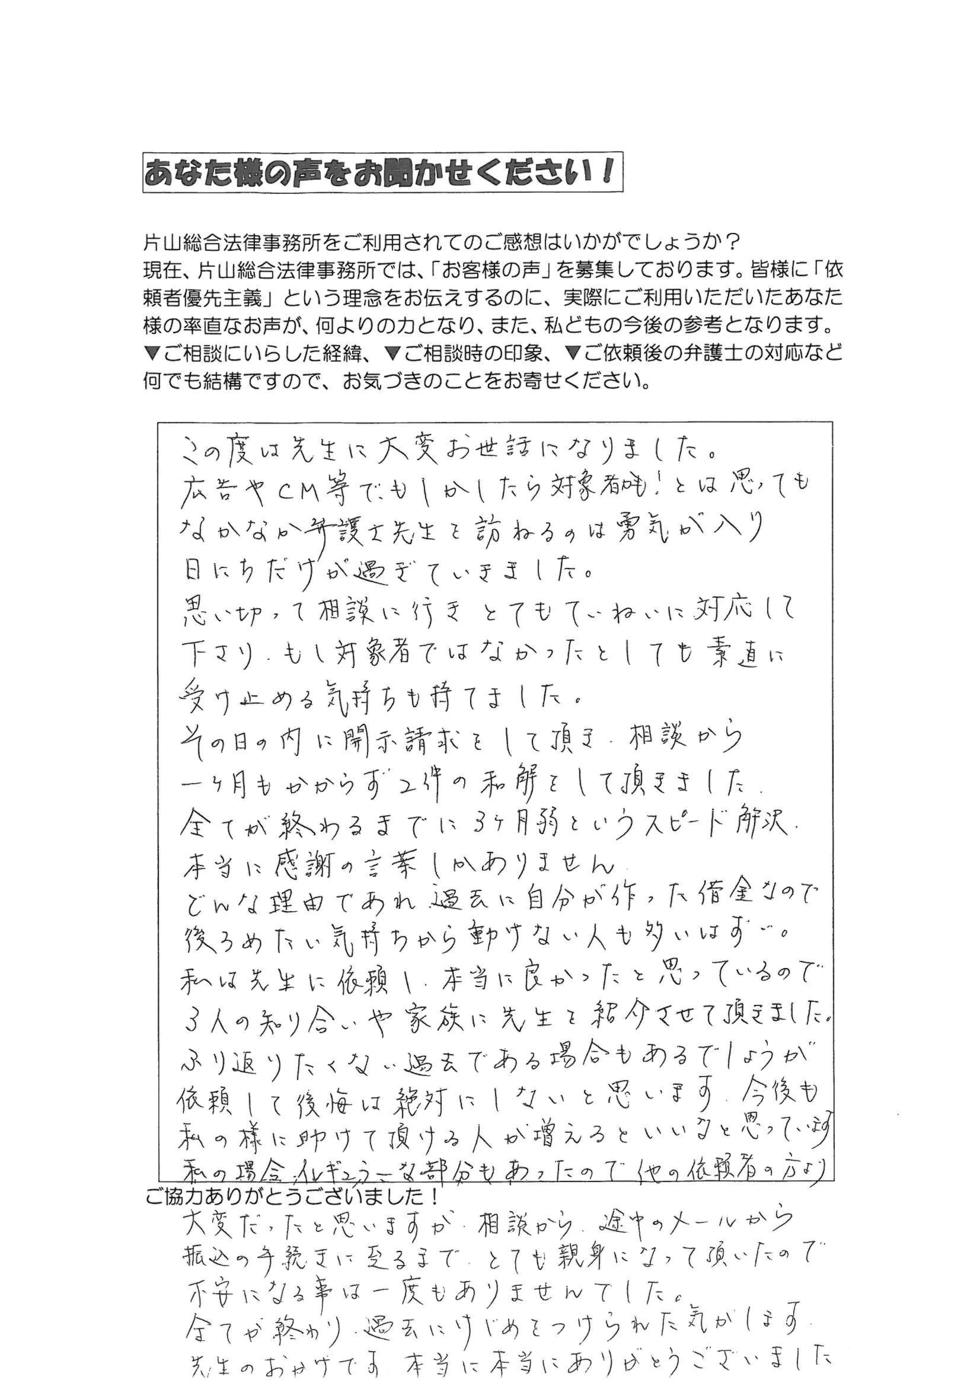 あなた様の声をお聞かせください！
片山総合法律事務所をご利用されてのご感想はいかがでしょうか？
現在、片山総合法律事務所では、「お客様の声」を募集しております。皆様に「依
頼者優先主義」という理念をお伝えするのに、実際にご利用いただいたあなた
様の率直なお声が、何よりの力となり、また、私どもの今後の参考となります。
▼ご相談にいらした経緯、▼ご相談時の印象、▼ご依頼後の弁護士の対応など
何でも結構ですので、お気づきのことをお寄せください。
この度は先生に大変お世話になりました。
広告やCM等で、もしかしたら対象者かも！とは思っても
なかなか弁護士先生を訪ねるのは勇気が入り
日にちだけが過ぎていきました。
思い切って相談に行き とてもていねいに対応して
下さり、もし対象者ではなかったとしても素直に
受け止める気持ちも持てました。
その日の内に開示請求をして頂き、相談から
一ヶ月もかからず2件の和解をして頂きました、
全てが終わるまでに3ヶ月弱というスピード解決、
本当に感謝の言葉しかありません、
どんな理由であれ、過去に自分が作った借金なので
後ろめたい気持ちから動けない人も多いはず…。
私は先生に依頼し、本当に良かったと思っているので
3人の知り合いや家族に先生を紹介させて頂きました。
ふり返りたくない過去である場合もあるでしょうが
依頼して後悔は絶対にしないと思います、今後も
私の様に助けて頂ける人が増えるといいなと思っています
私の場合、イレギュラーな部分もあったので他の依頼者の方より
ご協力ありがとうございました！
大変だったと思いますが、相談から、途中のメールから
振込の手続きに至るまで、とても親身になって頂いたので
不安になる事は一度もありませんでした。
全てが終わり、過去にけじめをつけられた気がします、
先生のおかげです 本当に本当にありがとうございました